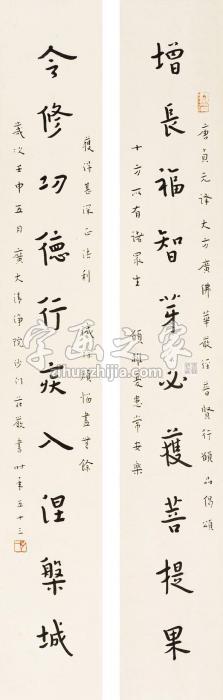 唐貞元譯大方廣佛華嚴經普賢行願品偈頌
增長福智芽必獲菩提果
十方所有諸眾生 願離憂患常安樂
獲得甚深正法利 滅除煩惱盡無餘
令修功德行疾入涅槃城
歲次壬申五月廣大清淨院沙門莊嚴書時年五十三
字画之家
zihuazhijia.com